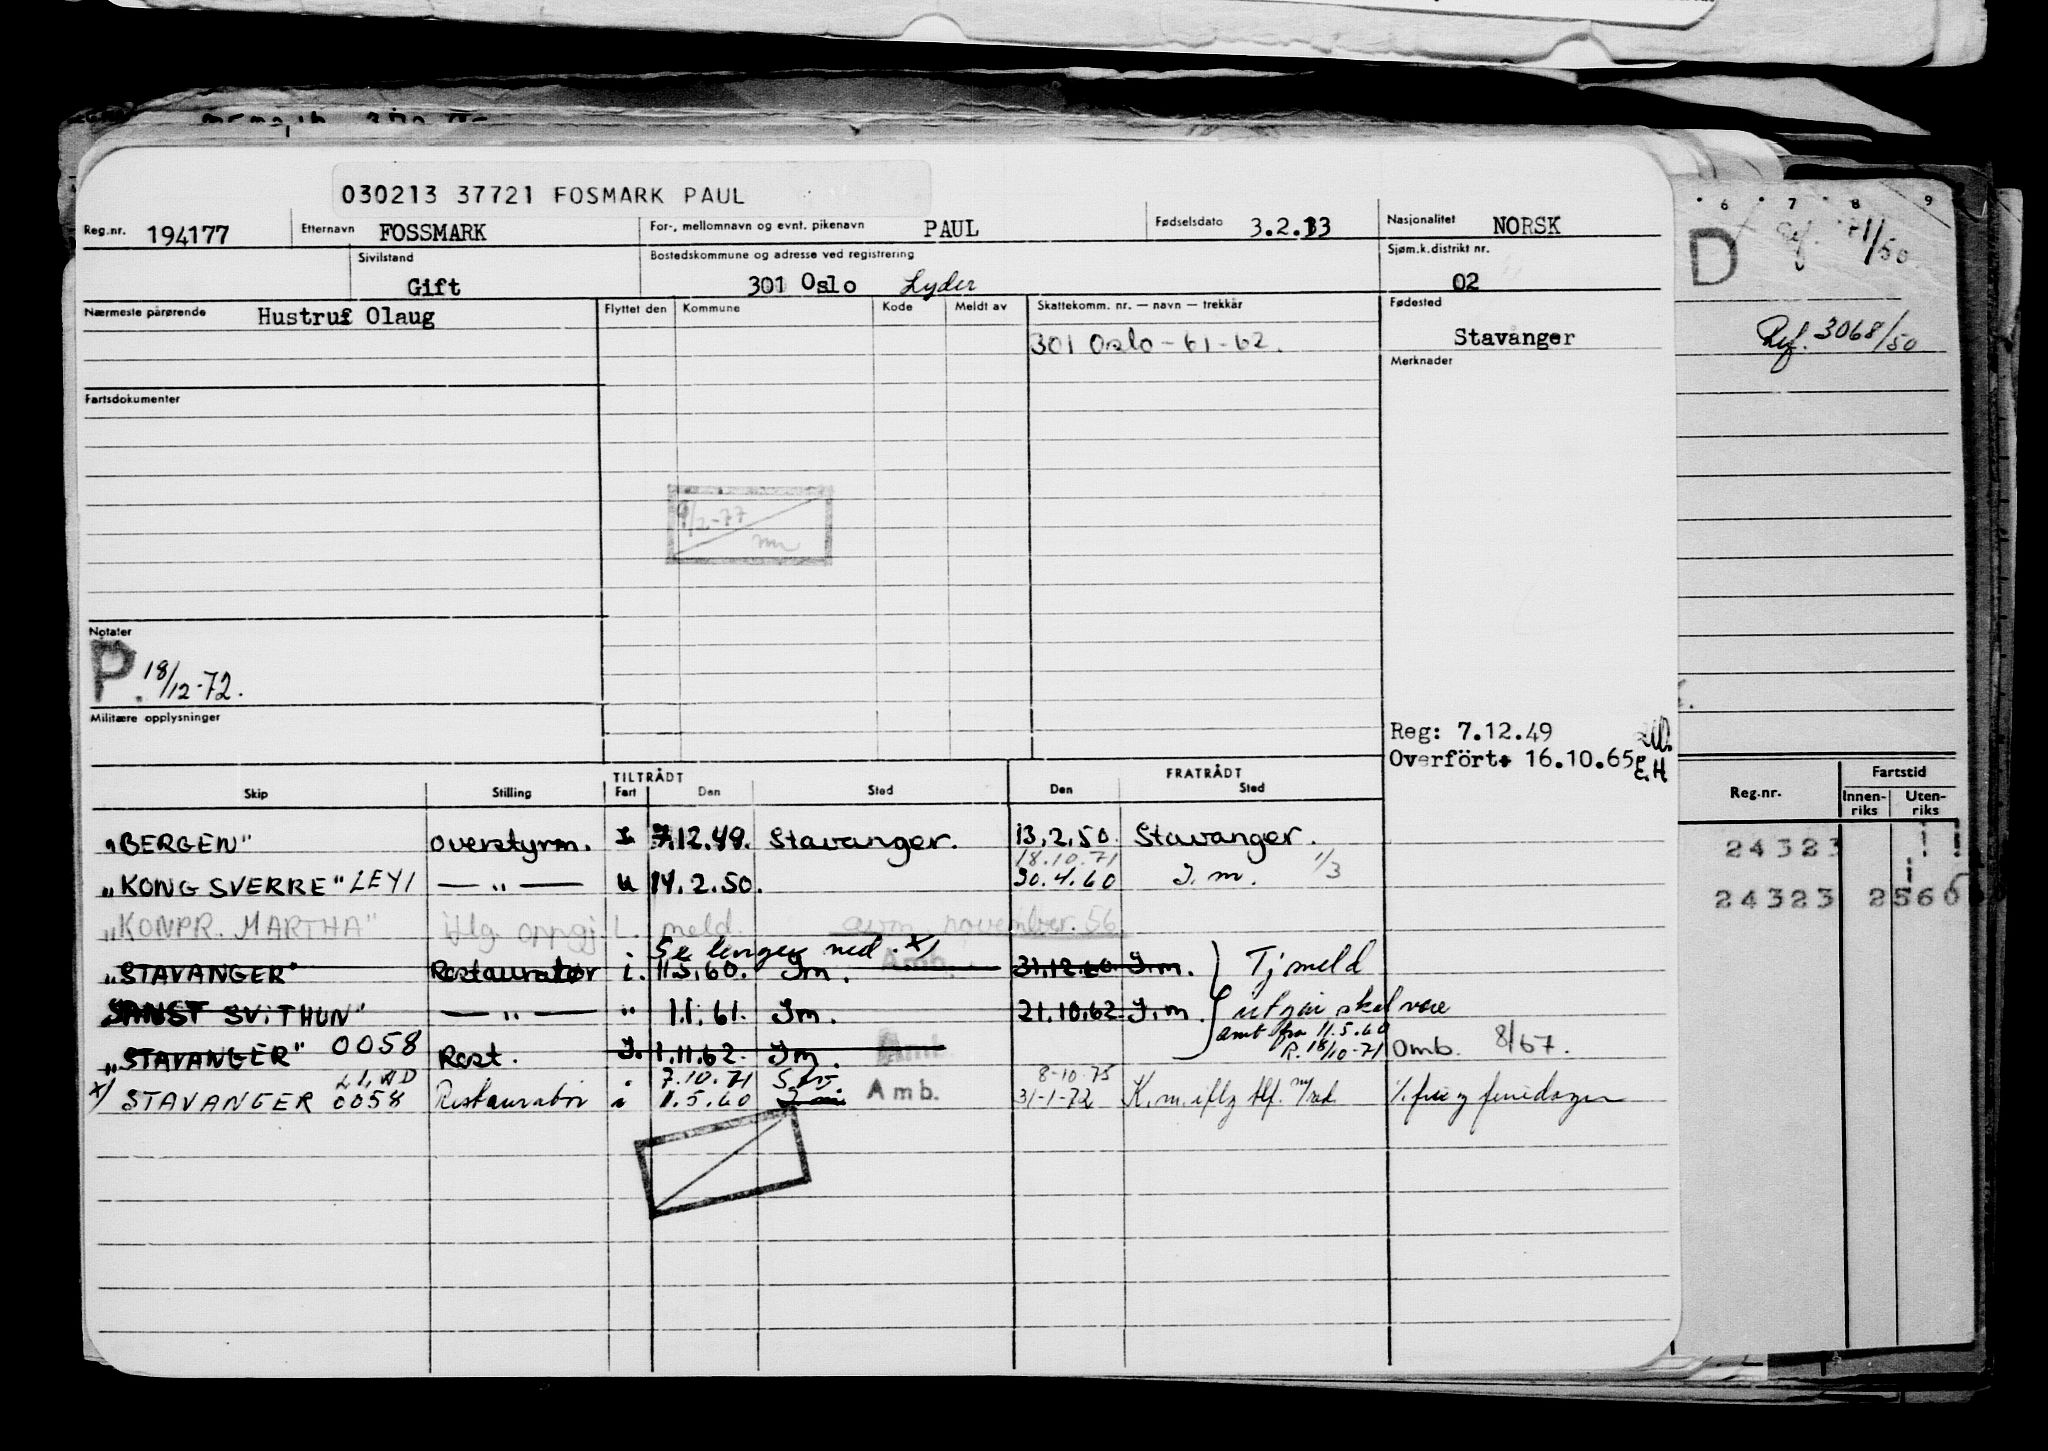 030213 37721 FOSMARK PAUL
Reg.nr. 194177 Etternavn FOSSMARK For-, mellomnavn og evnt. pikenavn PAUL Fødselsdato 3.2.13 Nasjonalitet NORSK
Sivilstand Gift Bostedskommune og adresse ved registrering 301 Oslo Lyder Sjøm.k.distrikt nr. 02
Nærmeste pårørende Hustru: Olaug Flyttet den Kommune Kode Meldt av Skattekomm. nr. — navn — trekkår Fødested
301 Oslo - 61-62. Stavanger
Merknader
Fartsdokumenter
9/2-77
Notater
P. 18/12-72.
Militære opplysninger
Reg: 7.12.49
Overført. 16.10.65 E.H
TILTRÅDT FRATRÅDT
Skip Stilling Fart Den Sted Den Sted
"BERGEN" overstyrm. I 7.12.49. Stavanger. 13.2.50. Stavanger.
18.10.71 1/3
"KONG SVERRE" LEYI — " — U 14.2.50. 30.4.60 I.m.
"KONPR. MARTHA" iflg. oppgj. meld. november. 56.
Se lenger ned x)
"STAVANGER" Restauratør i. 11.5.60. Im. Amb. 31.12.60. I.m. Tj meld
SANST SVITHUN" — " — " 1.1.61. Im. 21.10.62 I.m. utgår skal være
amb fra 11.5.60
"STAVANGER" 0058 Rest. I. 1.11.62. Im. Amb. R. 18/10-71 Omb. 8/67.
7.10.71 8-10-75
x) STAVANGER 0058 Restauratør i 11.5.60 Amb. 31-1-72 K.m. iflg tlf.
6 7 8 9
D
71/50
Ref. 3068/50
Reg.nr. Fartstid
Innen-riks Uten-riks
24323
24323 2560